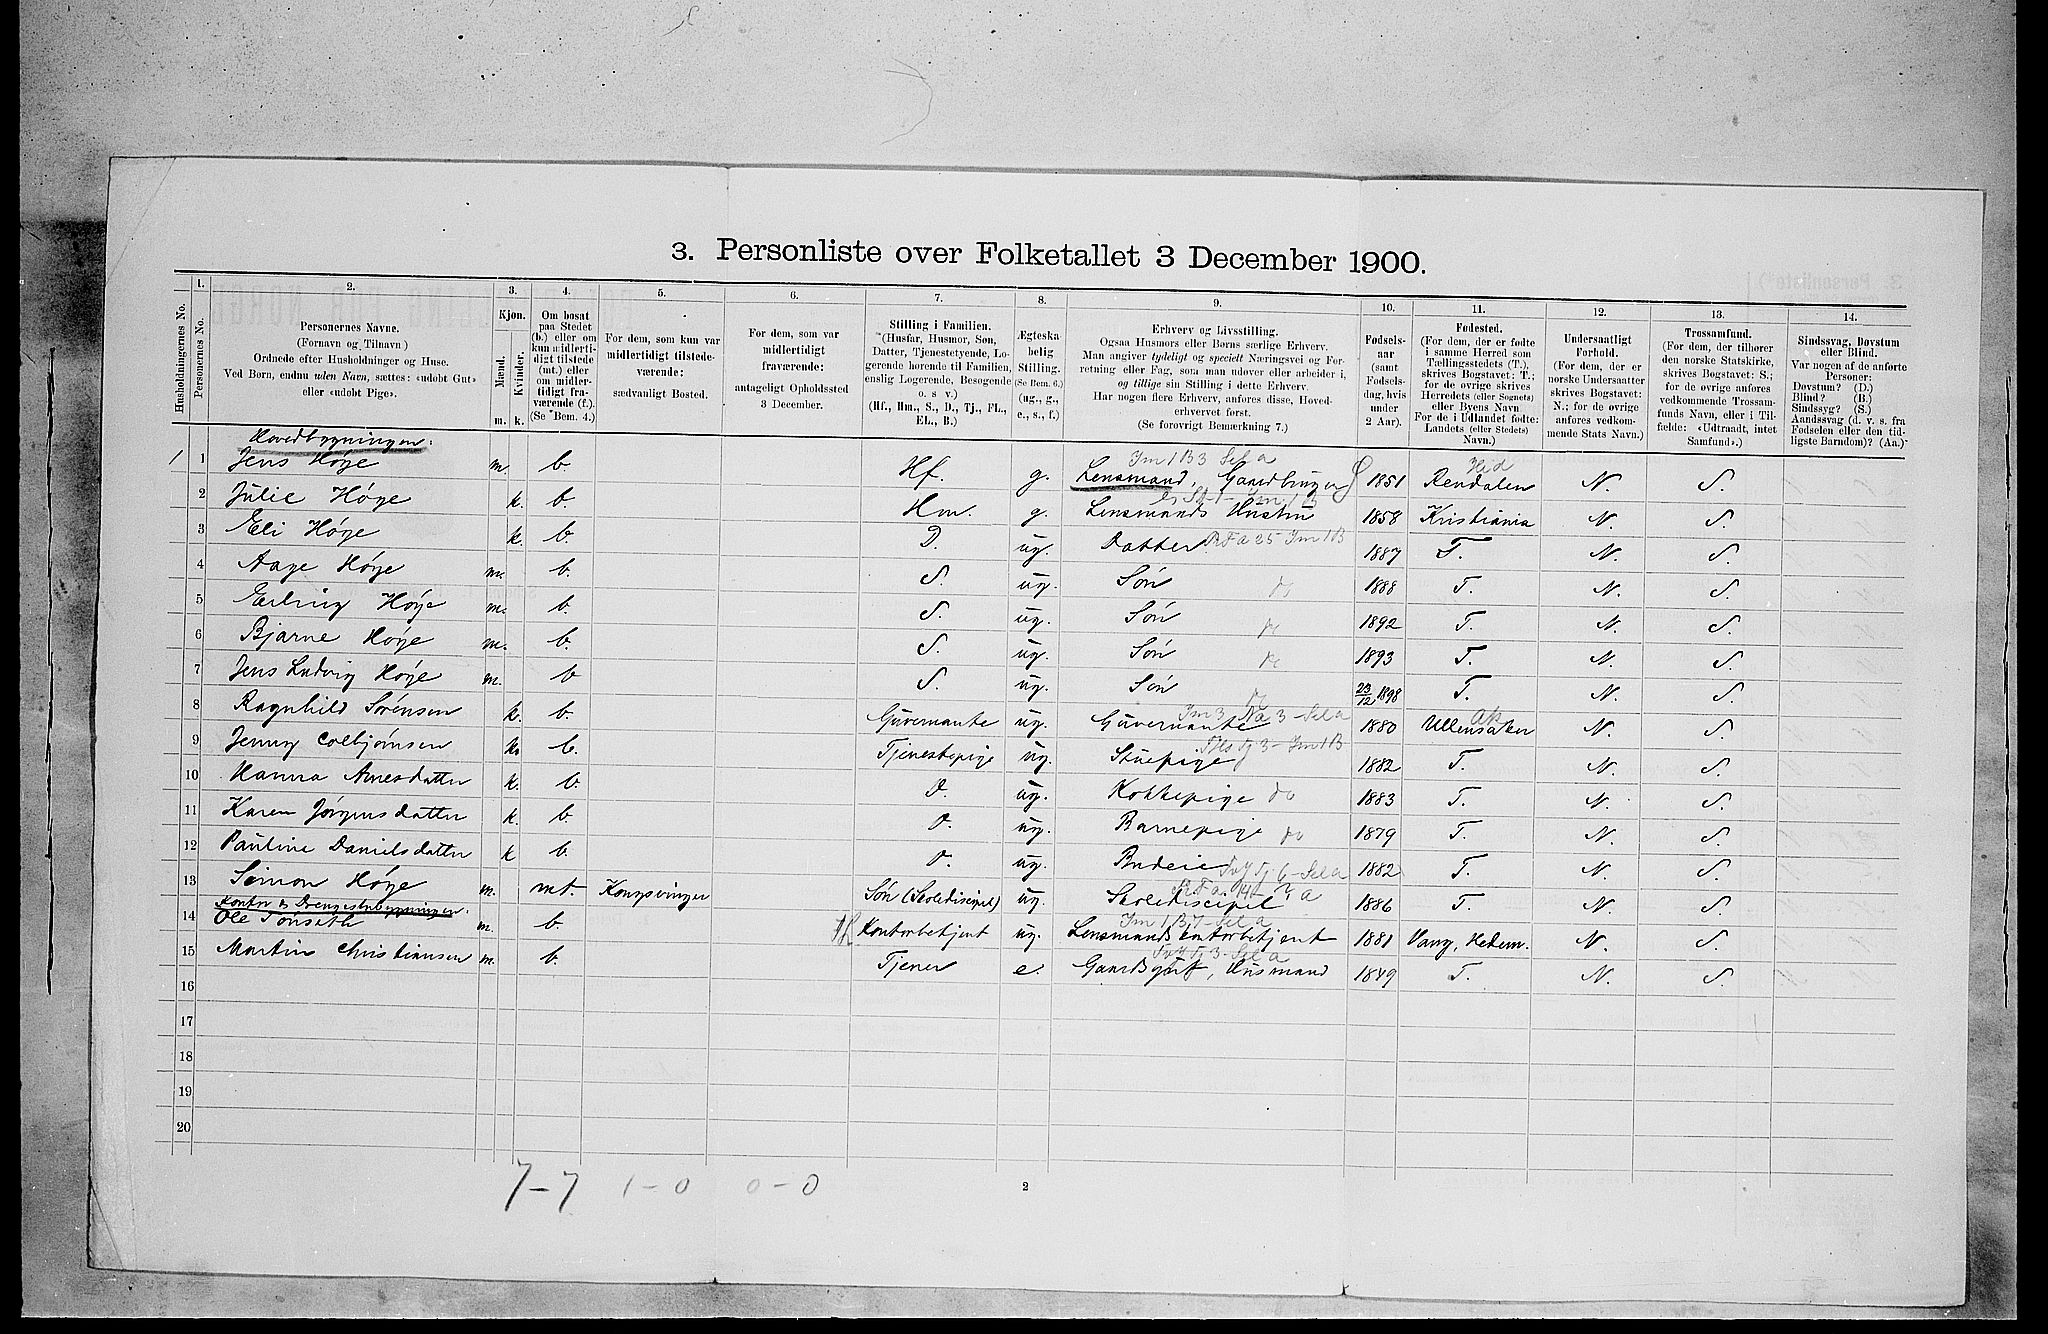 3. Personliste over Folketallet 3 December 1900.
Husholdningernes No.
1.
Personernes No.
2.
Personernes Navne.
(Fornavn og Tilnavn)
Ordnede efter Husholdninger og Huse.
Ved Børn, endnu uden Navn, sættes: «udøbt Gut»
eller «udøbt Pige».
3.
Kjøn.
Mænd.
Kvinder.
m. k.
4.
Om bosat
paa Stedet
(b.) eller om
kun midlerti-
digt tilstede
(mt.) eller
om midler-
tidigt fra-
værende (f.).
(Se Bem. 4.)
5.
For dem, som kun var
midlertidigt tilstede-
værende:
sædvanligt Bosted.
6.
For dem, som var
midlertidigt
fraværende:
antageligt Opholdssted
3 December.
7.
Stilling i Familien.
(Husfar, Husmor, Søn,
Datter, Tjenestetyende, Lo-
gerende hørende til Familien,
enslig Logerende, Besøgende
o. s. v.)
(Hf., Hm., S., D., Tj., FL.,
EL., B.)
8.
Ægteska-
belig
Stilling.
(Se Bem. 6.)
(ug., g.,
e., s., f.)
9.
Erhverv og Livsstilling.
Ogsaa Husmors eller Børns særlige Erhverv.
Man angiver tydeligt og specielt Næringsvei og For-
retning eller Fag, som man udøver eller arbeider i,
og tillige sin Stilling i dette Erhverv.
Har nogen flere Erhverv, anføres disse, Hoved-
erhvervet først.
(Se forøvrigt Bemærkning 7.)
10.
Fødsels-
aar
(samt
Fødsels-
dag, hvis
under
2 Aar).
11.
Fødested.
(For dem, der er fødte
i samme Herred som
Tællingsstedets (T.),
skrives Bogstavet: T.;
for de øvrige skrives
Herredets (eller Sognets)
eller Byens Navn
For de i Udlandet fødte:
Landets (eller Stedets)
Navn.)
12.
Undersaatligt
Forhold.
(For dem, der er
norske Undersaatter
skrives Bogstavet:
N.; for de øvrige
anføres vedkom-
mende Stats Navn.)
13.
Trossamfund.
(For dem, der tilhører
den norske Statskirke,
skrives Bogstavet: S.;
for de øvrige anføres
vedkommende Trossam-
funds Navn, eller i Til-
fælde: «Udtraadt, intet
Samfund».)
14.
Sindssvag, Døvstum
eller Blind.
Var nogen af de anførte
Personer:
Døvstum? (D.)
Blind? (B.)
Sindssyg? (S.)
Aandssvag (d. v. s. fra
Fødselen eller den tid-
ligste Barndom)? (Aa.)
Hovedbygningen:
1 1 Jens Høye m. b. Hf. g. Lensmand, Gaardbruger 1851 Rendalen N. S.
2 Julie Høye k. b. Hm. g. Lensmands Hustru 1858 Kristiania N. S.
3 Eli Høye k. b. D. ug. Datter 1887 T. N. S.
4 Aage Høye m. b. S. ug. Søn do 1888 T. N. S.
5 Erling Høye m. b. S. ug. Søn do 1892 T. N. S.
6 Bjarne Høye m. b. S. ug. Søn do 1893 T. N. S.
7 Jens Ludvig Høye m. b S. ug. Søn do 23/12 1898 T. N. S.
8 Ragnhild Sørensen k. b. Guvernante ug. Guvernante 1880 Ullensaker N. S.
9 Jenny Colbjørnsen k. b. Tjenestepige ug. Stuepige 1882 T. N. S.
10 Hanna Arnesdatter k. b. D. ug. Kokkepige do 1883 T. N. S.
11 Karen Jørgensdatter k. b. D. ug. Barnepige do 1879 T. N. S.
12 Pauline Danielsdatter k b. D. ug. Budeie 1882 T. N. S.
13 Simon Høye m. mt. Kongsvinger Søn (Skolediscipel) ug. Skolediscipel 1886 T. N. S.
Kontor & Drengestubygningen:
14 Ole Tønseth m. b. Kontorbetjent ug. Lensmands kontorbetjent 1881 Vang, Hedem. N. S.
15 Martin Christiansen m. b. Tjener e. Gaardsgut, Husmand 1849 T. N. S.
16
17
18
19
20
7-7 1-0 0-0
2